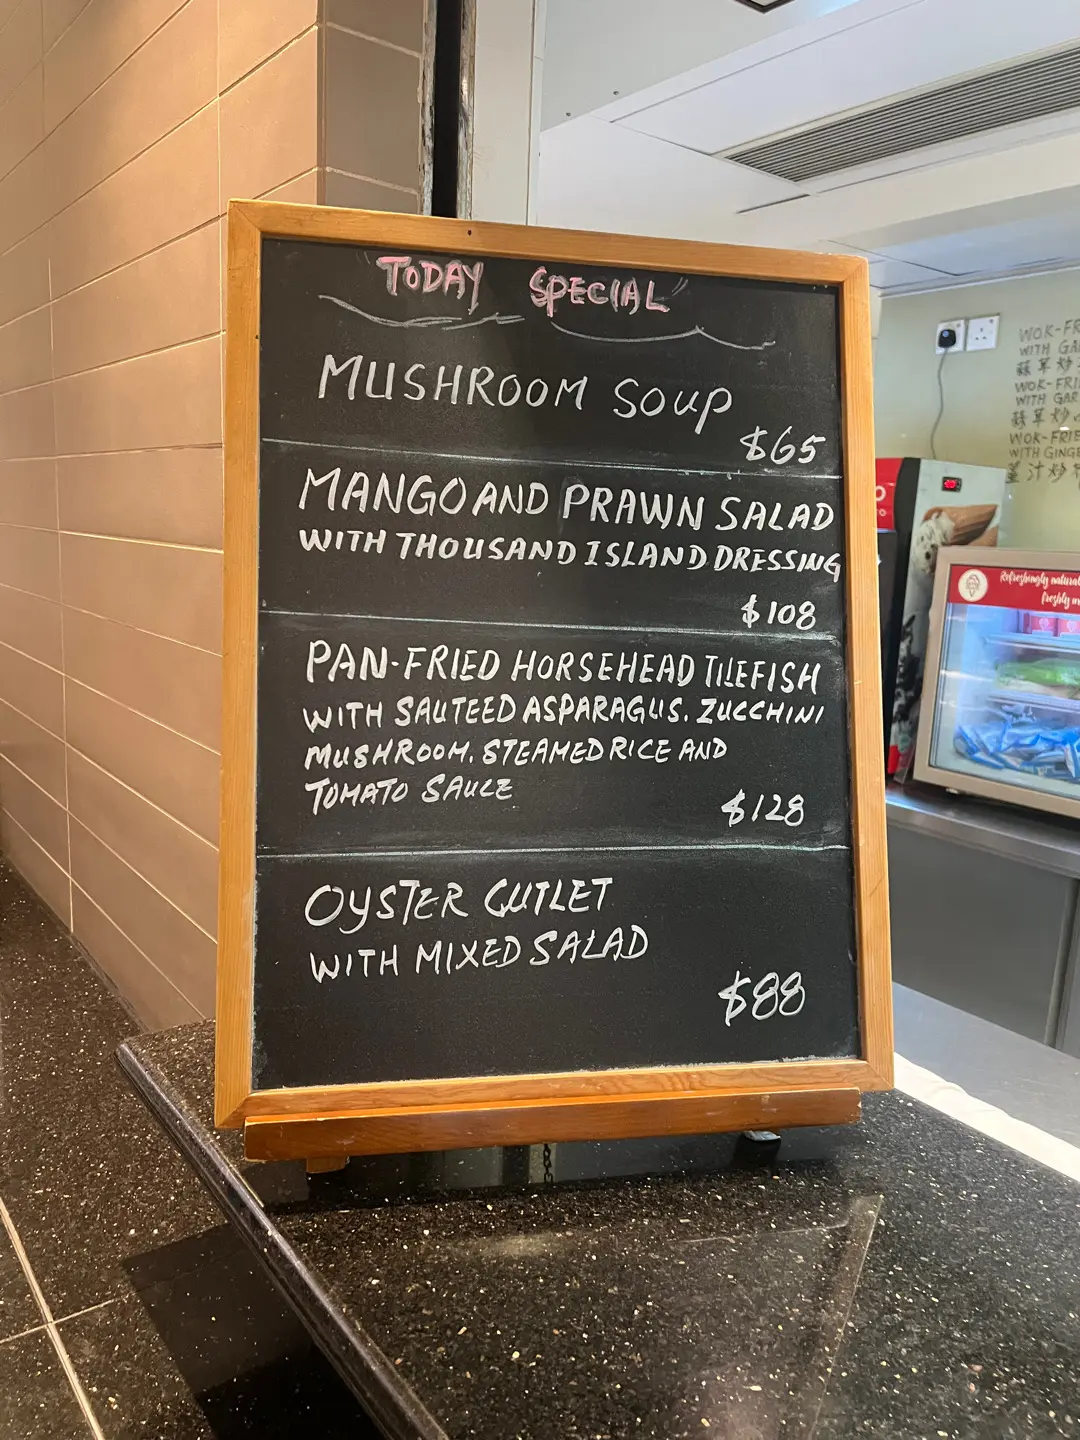 "TODAY SPECIAL"
MUSHROOM SOUP
$65
MANGO AND PRAWN SALAD
WITH THOUSAND ISLAND DRESSING
$108
PAN-FRIED HORSEHEAD TILEFISH
WITH SAUTEED ASPARAGUS. ZUCCHINI
MUSHROOM. STEAMED RICE AND
TOMATO SAUCE
$128
OYSTER CUTLET
WITH MIXED SALAD
$88
WOK-FR
WITH GA
蒜茸炒
WOK-FRI
WITH GAR
蒜茸炒
WOK-FRIE
WITH GINGE
薑汁炒
Refreshingly natural
freshly